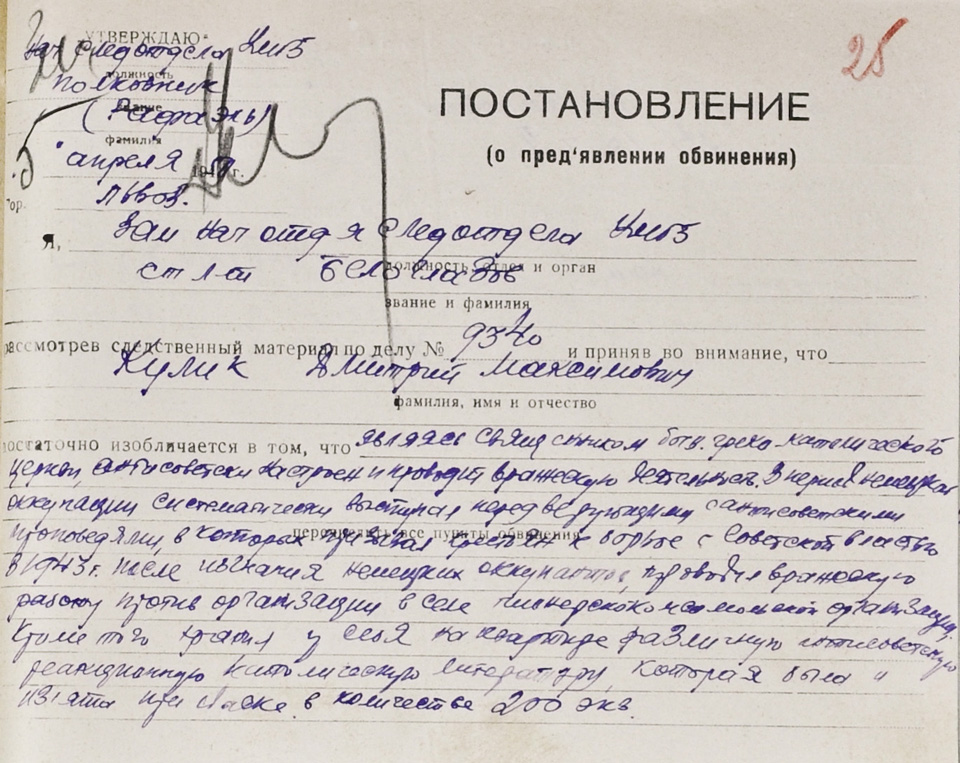 УТВЕРЖДАЮ"
Нач следотдела УМГБ
должность
полковник
звание
(Рафаэль)
фамилия
" апреля 19 г.
гор. Львов.
25
ПОСТАНОВЛЕНИЕ
(о пред'явлении обвинения)
Я, Зам нач отд я следотдела УМГБ
должность, отдел и орган
ст л-т
звание и фамилия
рассмотрев следственный материал по делу № 9340 и приняв во внимание, что
Кулик Дмитрий Максимович
фамилия, имя и отчество
достаточно изобличается в том, что являясь священником быв. греко католической
церкви, антисоветски настроен и проводит вражескую деятельность. В период немецкой
оккупации систематически выступал перед верующими с антисоветскими
перечислить все пункты обвинения
проповедями, в которых призывал крестьян к борьбе с Советской властью
В 1943 г. после изгнания немецких оккупантов, проводил вражескую
работу против организации в селе пионерской комсомольской организации.
Кроме того хранил у себя на квартире различную антисоветскую
реакционную католическую литературу, которая была и
изъята при обыске в количестве 200 экз.